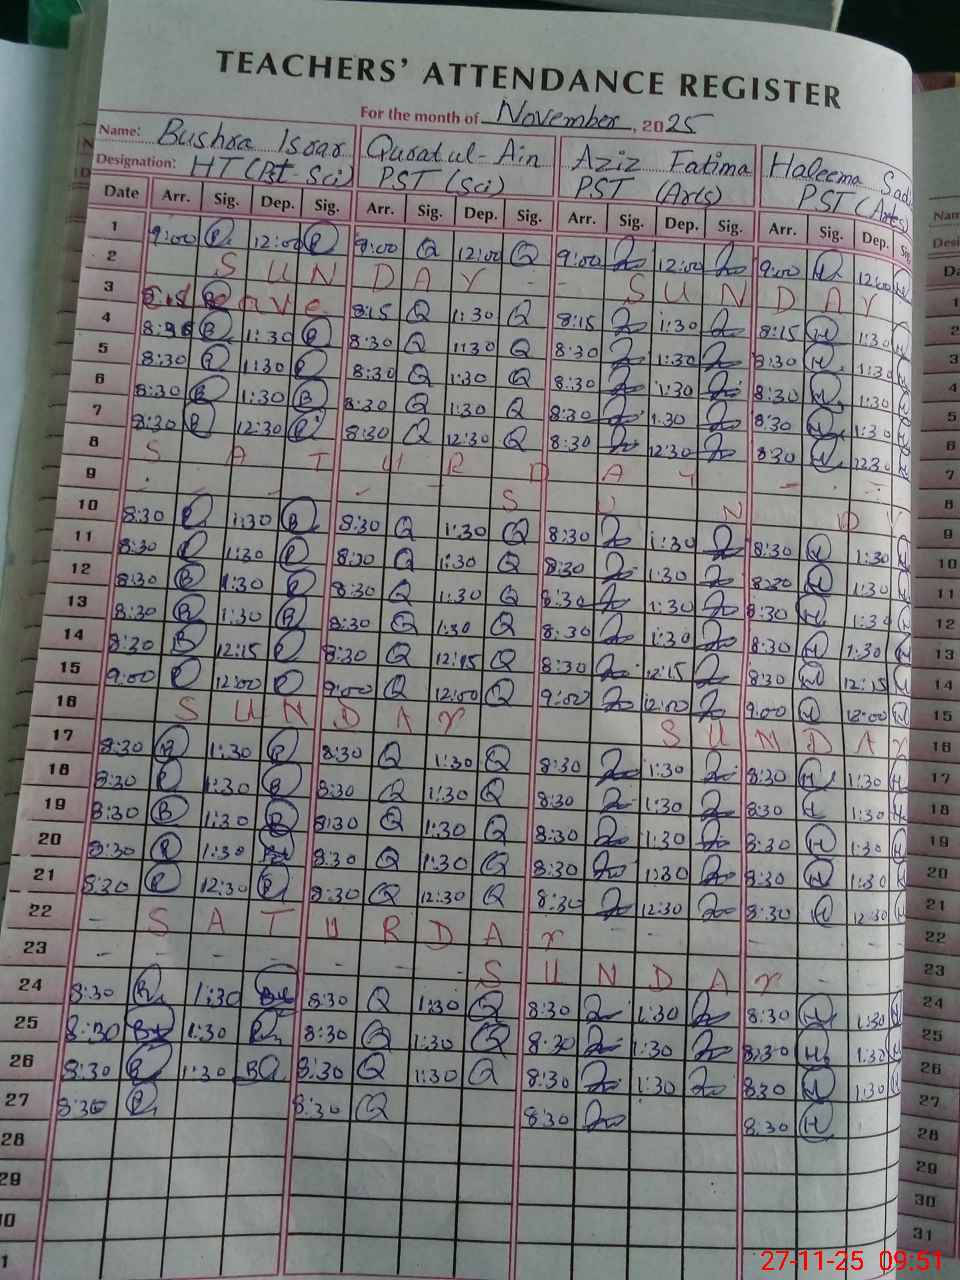 TEACHERS' ATTENDANCE REGISTER
For the month of November, 2025
Name: Bushra Israr Quratul-Ain Aziz Fatima Haleema Sad
Designation: HT (Pt-Sci) PST (Sci) PST (Arts) PST (Arts)
Date Arr. Sig. Dep. Sig. Arr. Sig. Dep. Sig. Arr. Sig. Dep. Sig. Arr. Sig. Dep.
1 9:00 12:00 9:00 Q 12:00 Q 9:00 12:00 9:00 H 12:00 H
2 SUNDAY - - SUNDAY
3 8:15 Q 1:30 Q 8:15 1:30 8:15 H 1:30 H
4 B 1:30 8:30 Q 1:30 Q 8:30 1:30 8:30 H 1:30 H
5 8:30 1:30 8:30 Q 1:30 Q 8:30 1:30 8:30 H 1:30 H
6 8:30 B 1:30 B 8:30 Q 1:30 Q 8:30 1:30 8:30 H 1:30 H
7 8:30 B 12:30 8:30 Q 12:30 Q 8:30 12:30 8:30 H 12:30 H
8 SATURDAY - - -
9 SUN DY
10 8:30 1:30 B 8:30 Q 1:30 Q 8:30 1:30 8:30 H 1:30 H
11 8:30 1:30 8:30 Q 1:30 Q 8:30 1:30 8:30 H 1:30 H
12 8:30 B 1:30 8:30 Q 1:30 Q 8:30 1:30 8:30 H 1:30 H
13 8:30 B 1:30 B 8:30 Q 1:30 Q 8:30 1:30 8:30 H 1:30 H
14 8:30 B 12:15 8:30 Q 12:15 Q 8:30 12:15 8:30 H 12:15 H
15 9:00 12:00 9:00 Q 12:00 Q 9:00 12:00 9:00 H 12:00 H
16 SUNDAY SUNDAY
17 8:30 B 1:30 8:30 Q 1:30 Q 8:30 1:30 8:30 H 1:30 H
18 8:30 1:30 B 8:30 Q 1:30 Q 8:30 1:30 8:30 H 1:30 H
19 8:30 B 1:30 B 8:30 Q 1:30 Q 8:30 1:30 8:30 H 1:30 H
20 8:30 1:30 8:30 Q 1:30 Q 8:30 1:30 8:30 H 1:30 H
21 8:30 12:30 8:30 Q 12:30 Q 8:30 12:30 8:30 H 12:30 H
22 - SATURDAY - -
23 - - - - - - - SUNDAY - -
24 8:30 1:30 8:30 Q 1:30 Q 8:30 1:30 8:30 H 1:30 H
25 8:30 1:30 8:30 Q 1:30 Q 8:30 1:30 8:30 H 1:30 H
26 8:30 1:30 8:30 Q 1:30 Q 8:30 1:30 8:30 H 1:30 H
27 8:30 8:30 Q 8:30 8:30 H
28
29
27-11-25 09:51